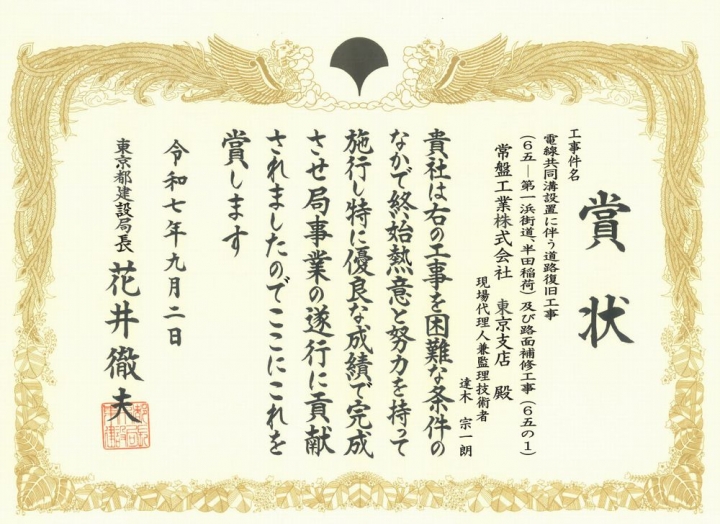 賞状
工事件名
電線共同溝設置に伴う道路復旧工事
（６五―第一浜街道、半田稲荷）及び路面補修工事（６五の１）
常盤工業株式会社　東京支店　殿
現場代理人兼監理技術者
達木　宗一朗
貴社は右の工事を困難な条件の
なかで終始熱意と努力を持って
施行し特に優良な成績で完成
させ局事業の遂行に貢献
されましたのでここにこれを
賞します
令和七年九月二日
東京都建設局長　花井徹夫